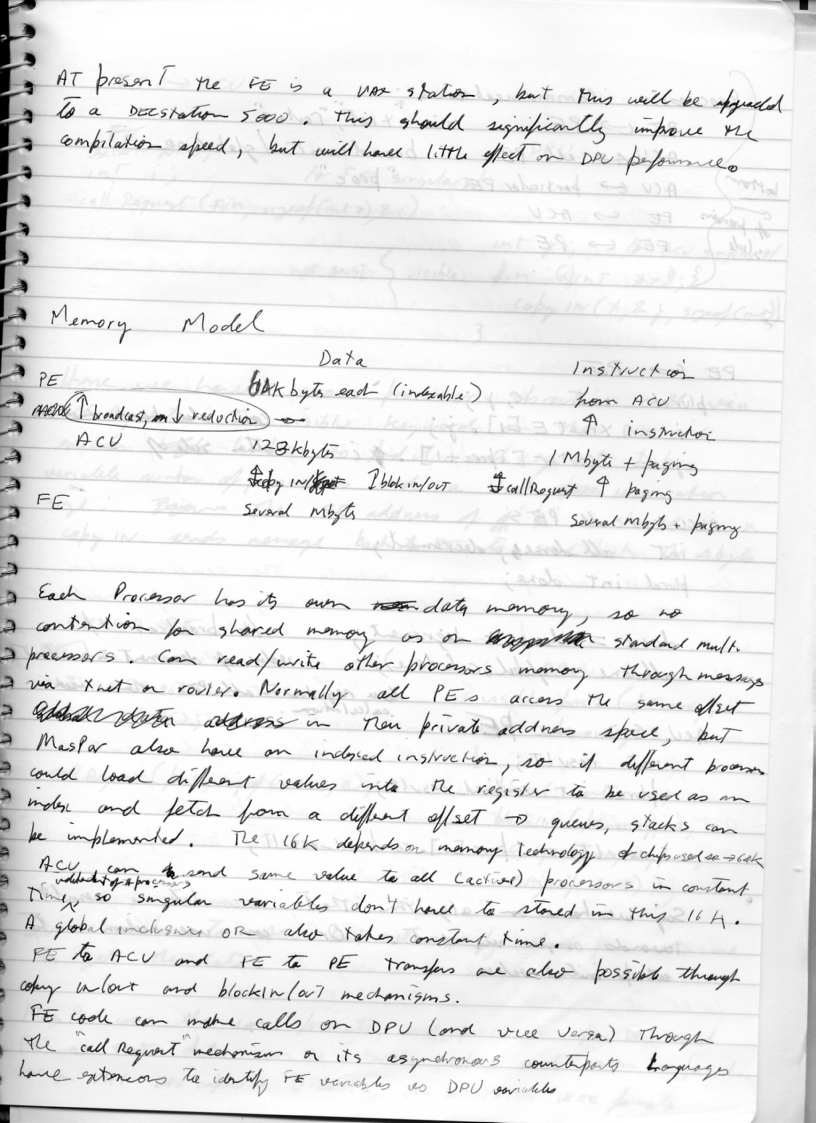 AT present the FE is a VAX station, but this will be upgraded
to a DECstation 5000. This should significantly improve the
compilation speed, but will have little effect on DPU performance.
Memory Model
Data Instruction
PE 64K bytes each (indexable) from ACU
↑ broadcast, on ↓ reduction ↑ instruction
ACU 128 kbytes 1 Mbyte + paging
↕ copy in/out ↕ block in/out ↕ call Request ↑ paging
FE Several Mbyts Several Mbyts + paging
Each Processor has its own data memory, so no
contention for shared memory as on standard multi-
processors. Can read/write other processors memory through messages
via Xnet or router. Normally all PEs access the same offset
in their private address space, but
MasPar also have an indexed instruction, so if different processors
could load different values into the register to be used as an
index and fetch from a different offset → queues, stacks can
be implemented. The 16K depends on memory technology of chips used so → 64K
ACU can send same value to all (active) processors in constant
independent of # processors
time, so singular variables don't have to stored in this 16K.
A global inclusive OR also takes constant time.
FE to ACU and FE to PE transfers are also possible through
copy in/out and blockIn/out mechanisms.
FE code can make calls on DPU (and vice versa) through
the "call Request" mechanism or its asynchronous counterparts Languages
have extensions to identify FE variables vs DPU variables